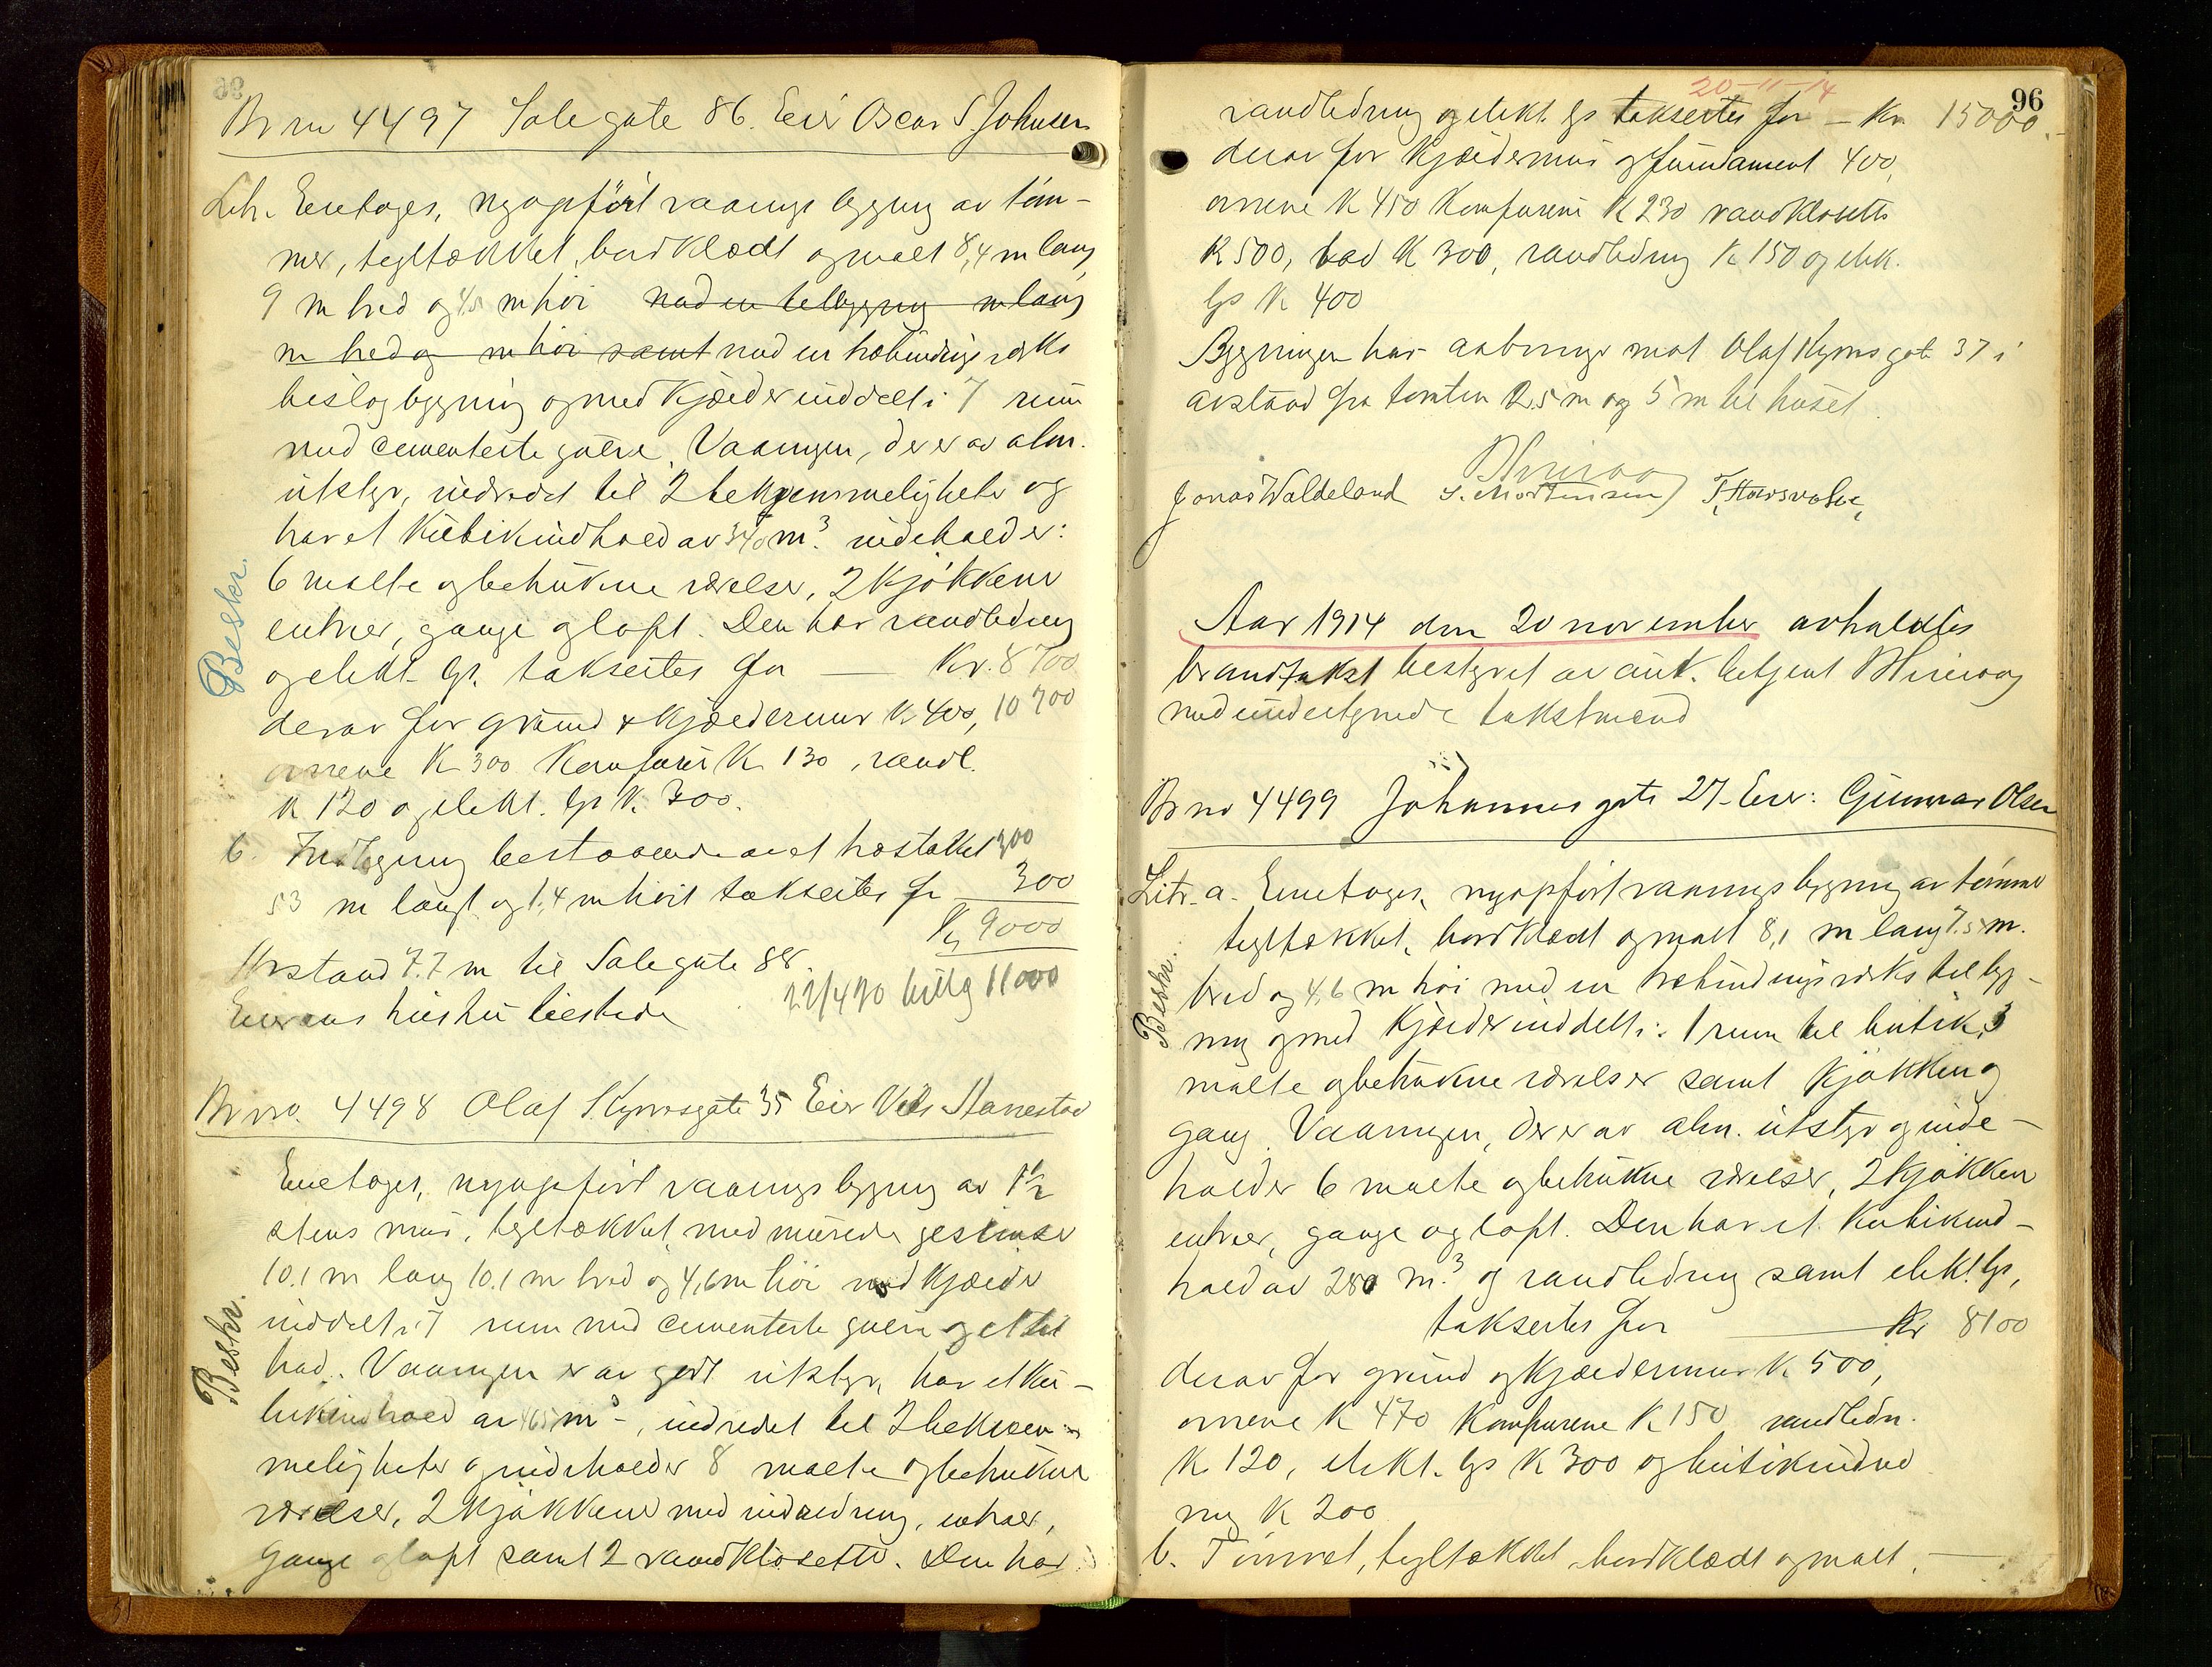 Br no 4497 Solegate 86. Eier Oscar S Johnsen
Litr. Enetages, nyopført vaaningsbygning av tøm-
mer, tegltækket, bordklædt og malt 8,4 m lang
9 m bred og 4,5 m høi med en tilbygning m lang
m bred og m høi samt med en træbindingsverks
bislagbygning og med kjælder inddelt i 7 rum
med cementerte gulve. Vaaningen, der er av alm.
utstyr, indredet til 2 bekvemmeligheter og
har et kubikindhold av 340 m³. indeholder:
6 malte og betrukne værelser, 2 kjøkkener
entreer, gange og loft. Den har vandledning
og elekt. lys. taksertes for — Kr. 8700
derav for grund & kjældermur K. 400, 10700
ovnene K 300 Komfurer K 130, vandl.
K 120 og elekt. lys K. 300.
b. Indhegning bestaaende av et træstakit 300
53 m langt og 1,4 m høit taksertes for 300
Kr 9000
Avstand 7.7 m til Solegate 88.
22/4 20 tillæg 11000
Eierens hustru tilstede
Beskr.
Br no. 4498 Olaf Kyrresgate 35 Eier Vilh. Stanestad
Enetages, nyopført vaaningsbygning av 1½
stens mur, tegltækket, med murede gesimser
10.1 m lang 10.1 m bred og 4,6 m høi med kjælder
inddelt i 7 rum med cementerte gulve og et til
bad. Vaaningen er av godt utstyr, har et ku-
bikindhold av 465 m³-, indredet til 2 bekvem-
meligheter og indeholder 8 malte og betrukne
værelser, 2 kjøkkener med indredning, entreer,
gange og loft samt 2 vandklosetter. Den har
Beskr.
20-11-14
96
vandledning og elekt. lys taksertes for — Kr. 15000.
derav for kjældermur og fundament 400,
ovnene K 450 Komfurene K 230 vandklosetter
K 500, bad K 300, vandledning K 150 og elek.
lys K 400
Bygningen har aabninger mot Olaf Kyrres gate 37 i
avstand fra tomten 2.5 m og 5 m til huset.
Jonas Waldeland S. Mortensen
Aar 1914 den 20 november avholdtes
brandtakst bestyret av aut. betjent
med undertegnede takstmænd
Br no 4499 Johannes gate 27- Eier: Gunnar Olsen
Litr. a. Enetages, nyopført vaaningsbygning av tømmer
tegltækket, bordklædt og malt 8,1 m lang 7.5 m.
bred og 4,6 m høi med en træbindingsverks tilbyg-
ning og med kjælder inddelt i: 1 rum til butik, 3
malte og betrukne værelser samt kjøkken og
gang. Vaaningen, der er av alm. utstyr og inde-
holder 6 malte og betrukne værelser, 2 kjøkken
entreer, gange og loft. Den har et kubikind-
hold av 280 m.³ og vandledning samt elekt. lys,
taksertes for — Kr 8100
derav for grund og kjældermur K. 500,
ovnene K 470 Komfurene K 150 vandledn.
K 120, elekt. lys K 300 og butikindred
ning K 200
b. Tømret, tegltækket bordklædt og malt, —
Beskr.